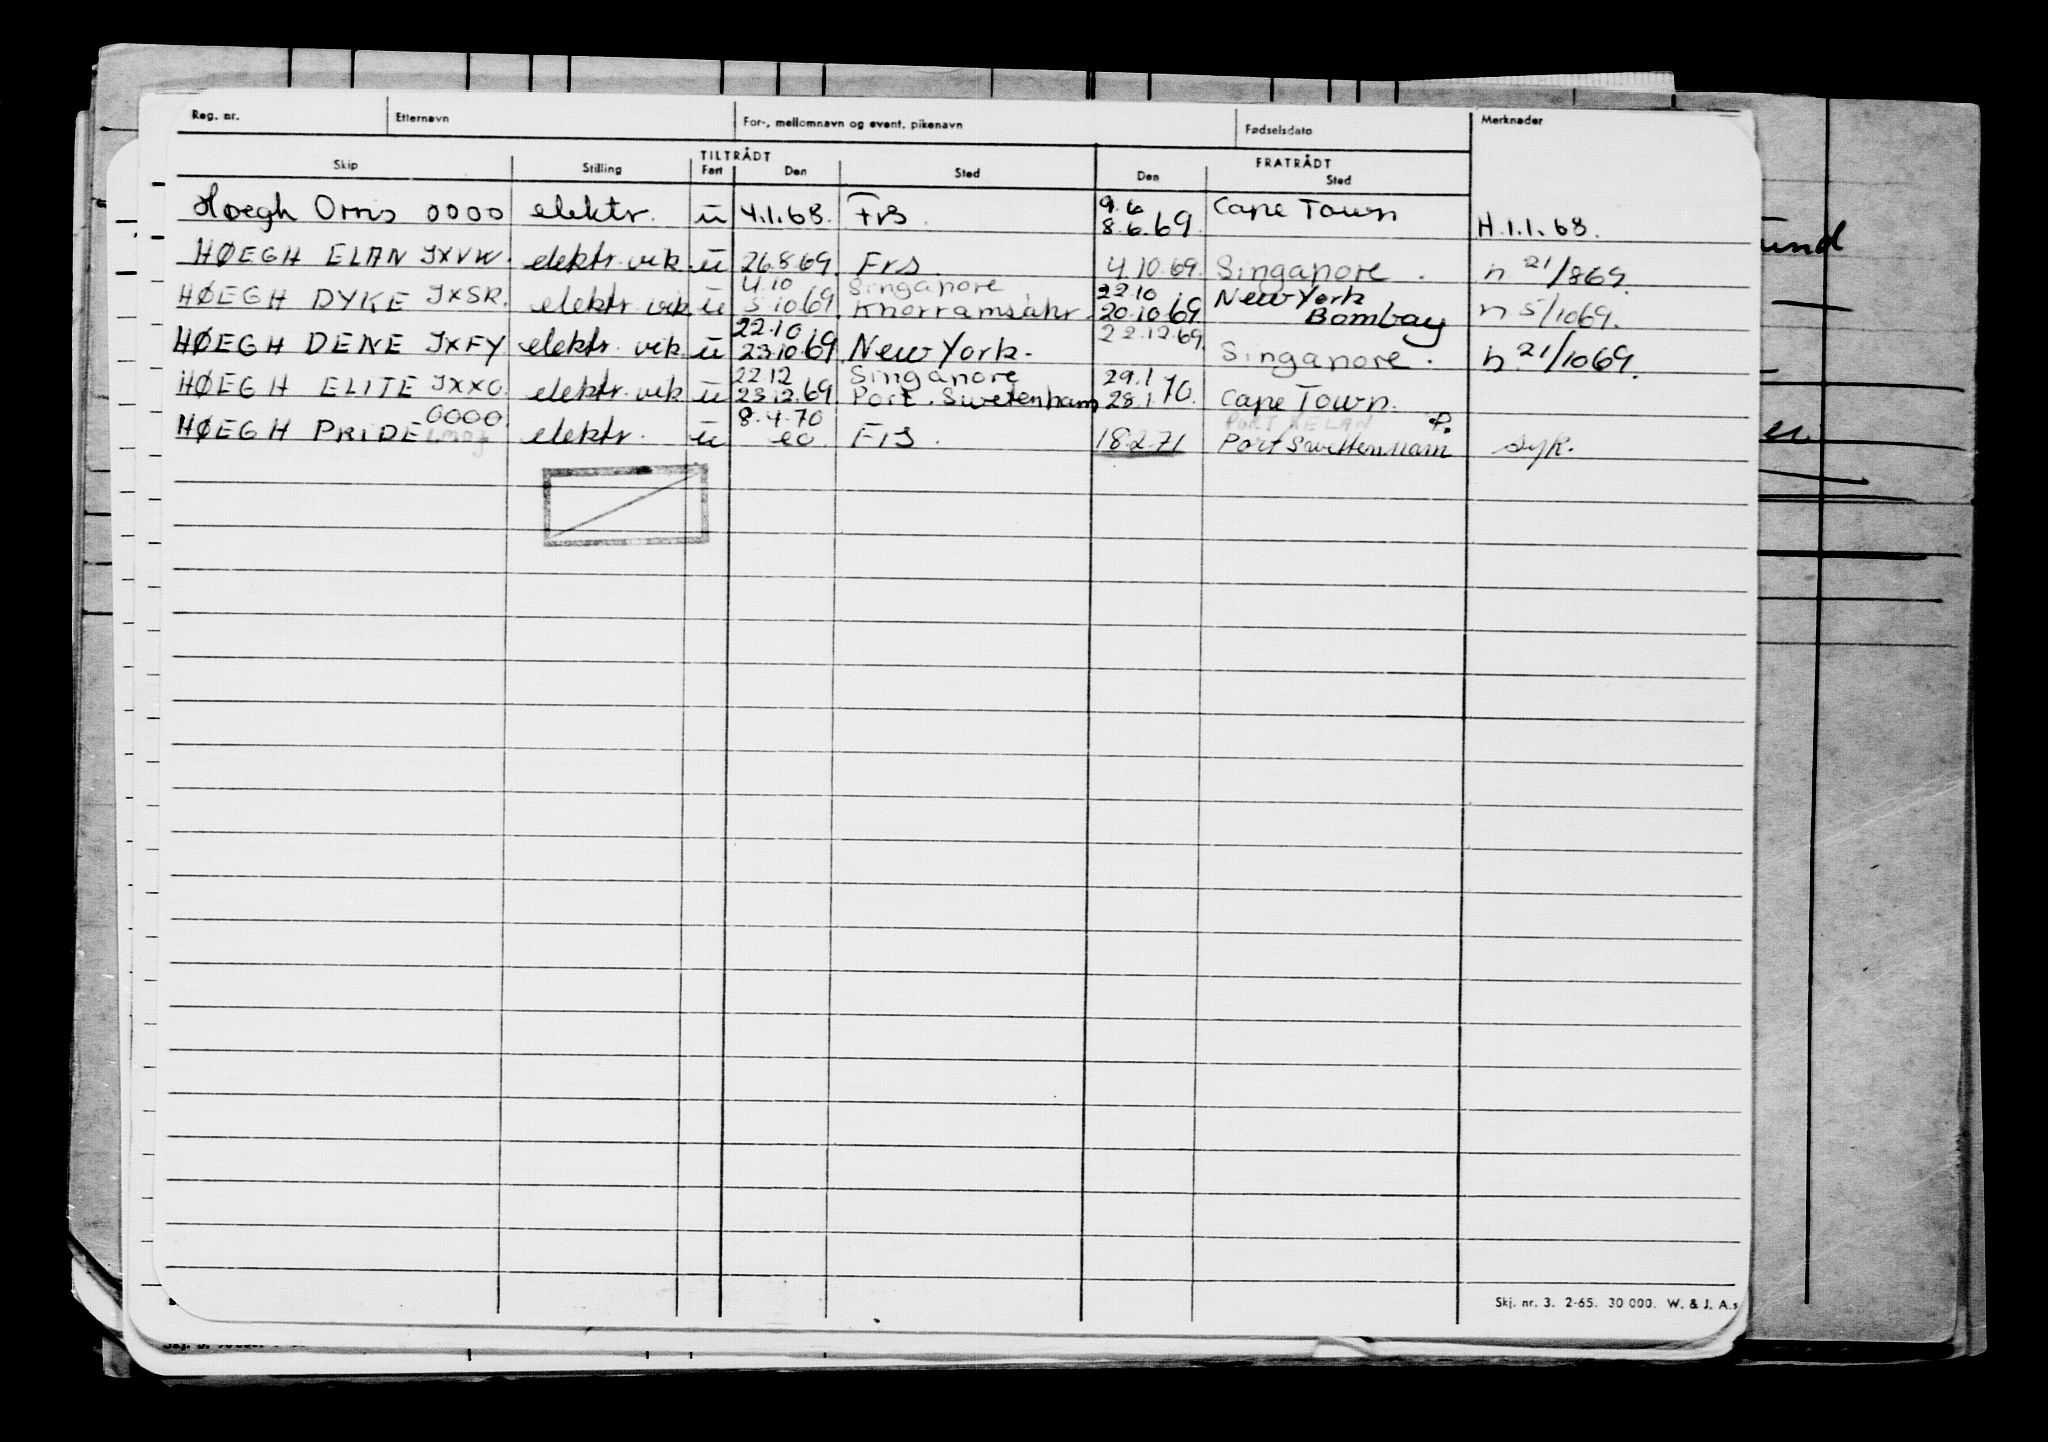 Reg. nr. Etternavn For-, mellomnavn og event. pikenavn Fødselsdato Merknader
TILTRÅDT FRATRÅDT
Skip Stilling Fart Den Sted Den Sted
9.6
Høegh Orris 0000 elektr. u 4.1.68. Frs. 8.6.69. Cape Town H.1.1.68.
HØEGH ELAN JXVW. elektr. vik u 26.8.69. Frs. 4.10.69. Singapore. h 21/869.
4.10 Singapore 22.10 New York
HØEGH DYKE JXSR. elektr. vik u 5.10.69 Khorramsahr. 20.10.69 Bombay h 5/1069.
22.10 22.12.69.
HØEGH DENE JXFY elektr. vik. u 23.10.69 New York. Singapore. h. 21/1069.
22.12 Singapore 29.1
HØEGH ELITE JXXO. elektr. vik u 23.12.69 Port. Swetenham 28.1.70. Cape Town.
0000. 8.4.70 PORT KELAN P.
HØEGH PRIDE elektr. u eo Frs. 18.2.71 Port Swettenham syk.
und
en
Skj. nr. 3. 2-65. 30 000. W. & J. A.s